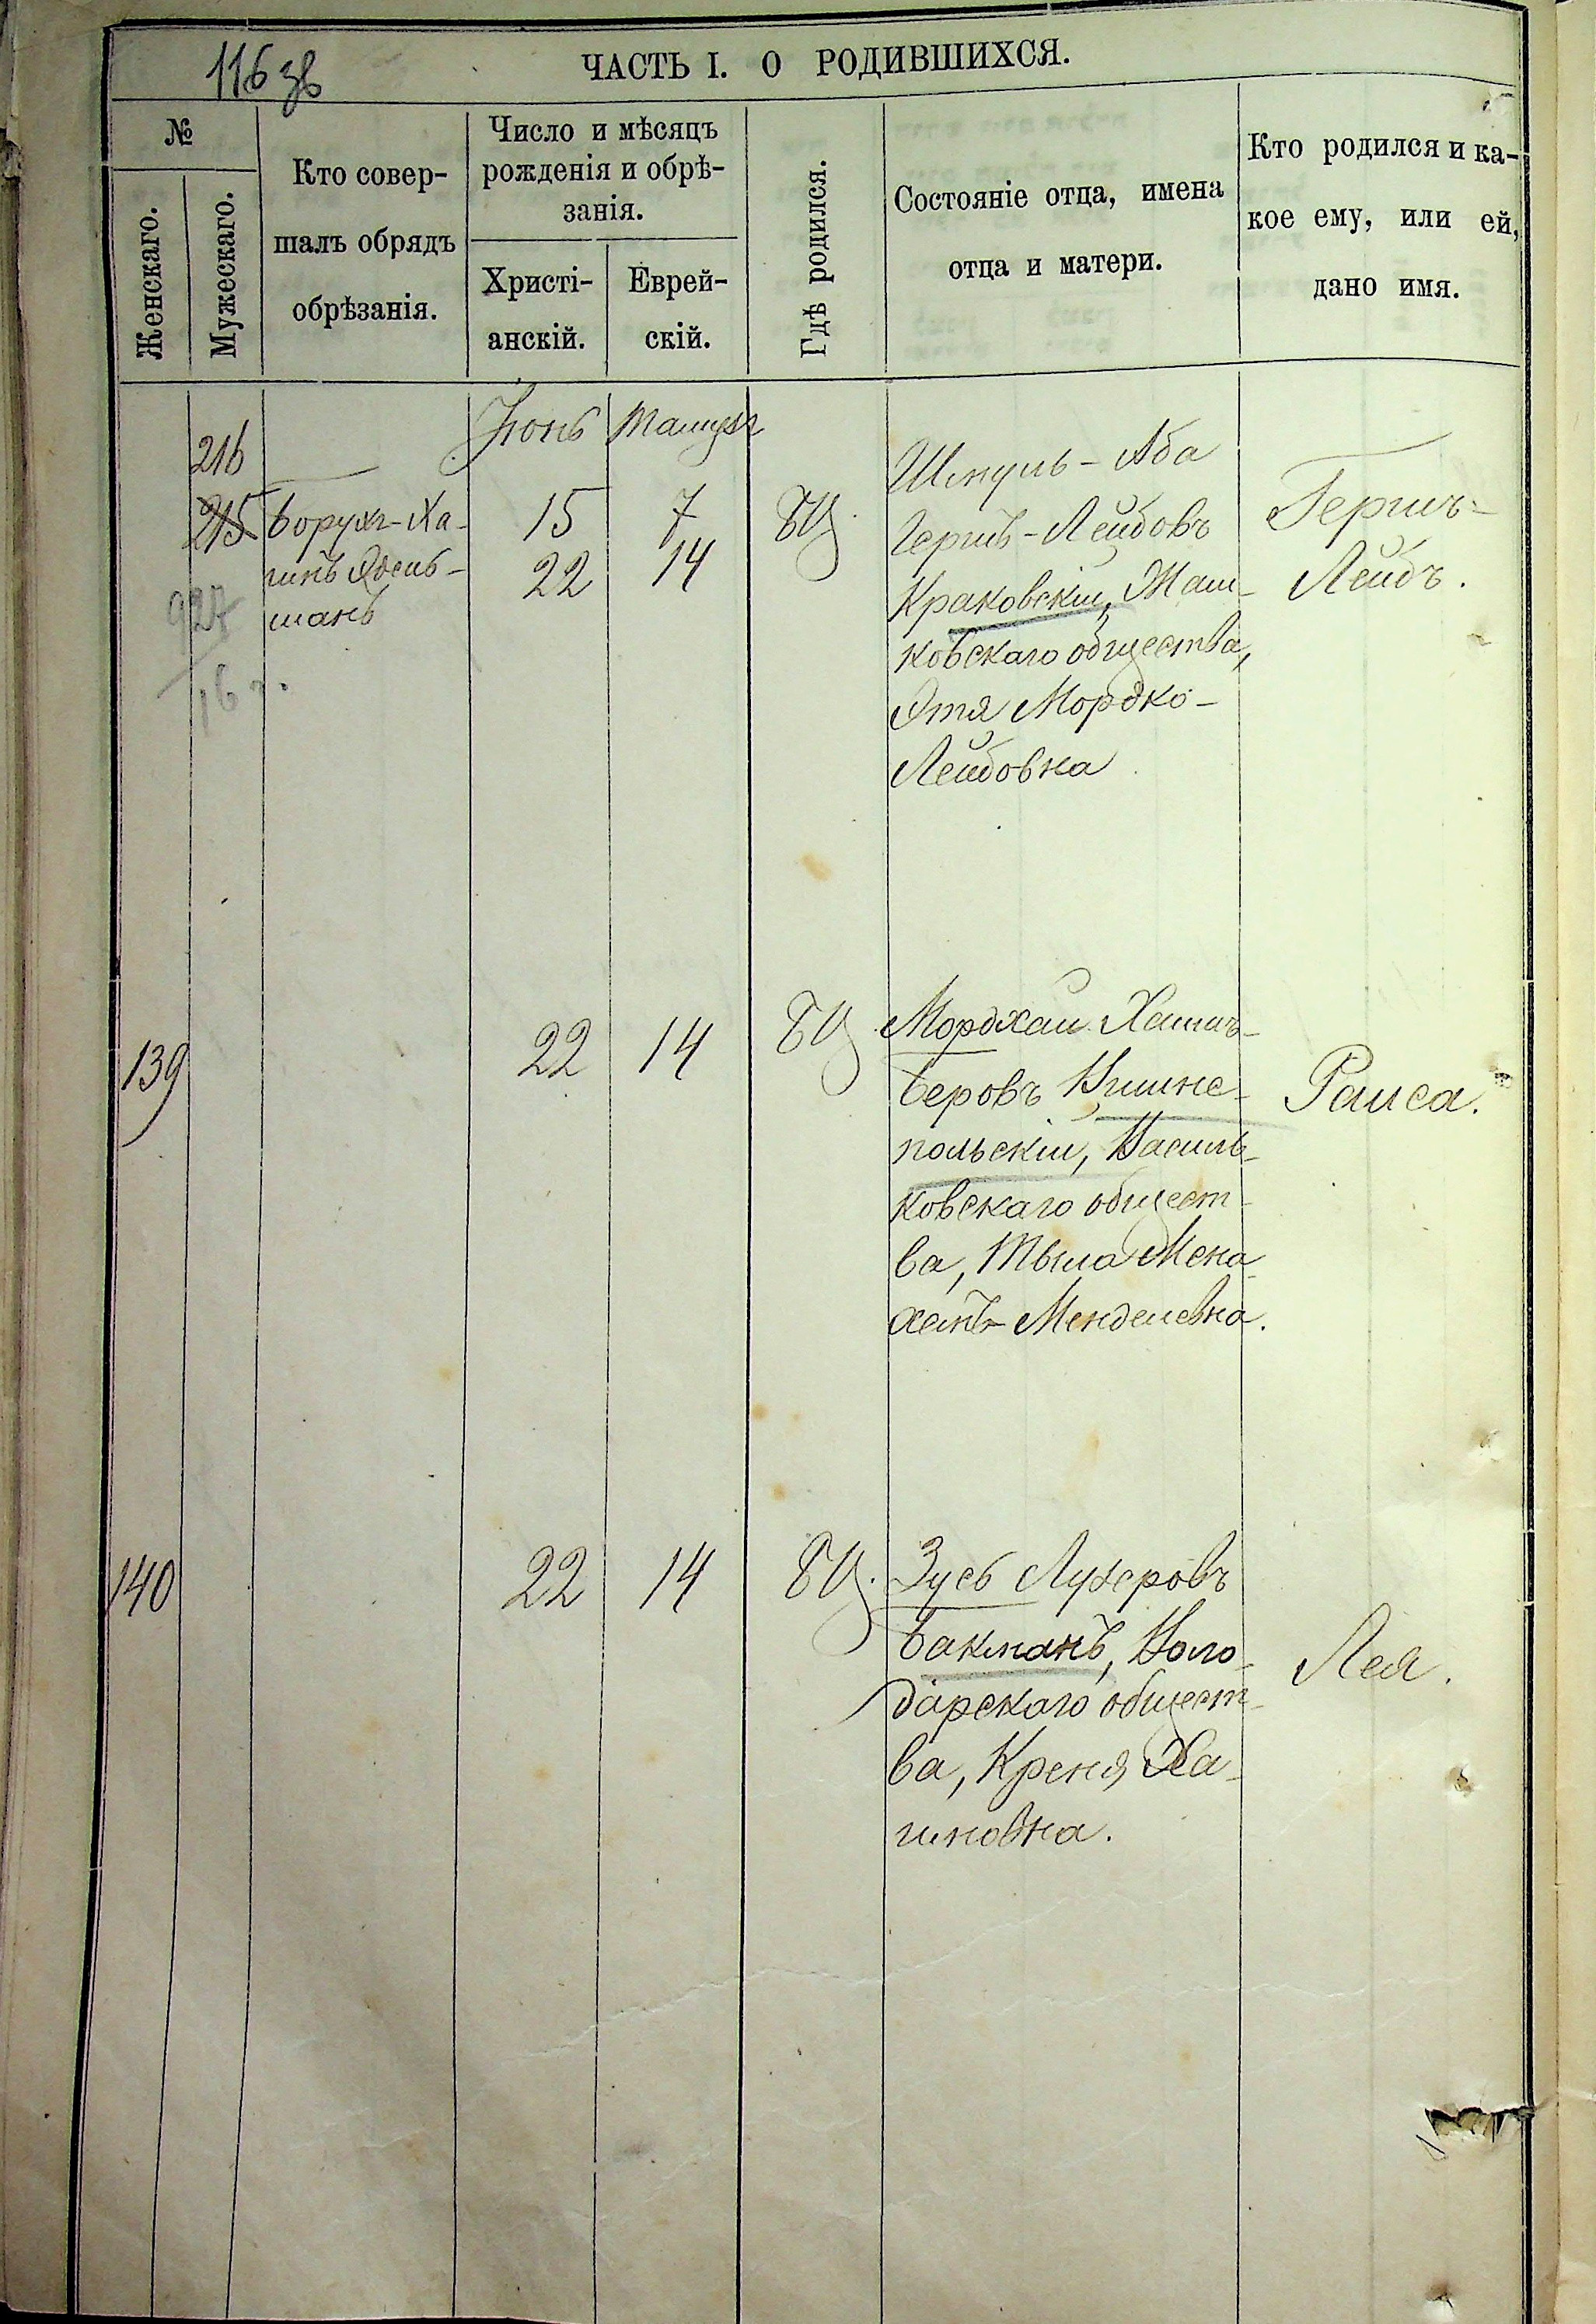 116 зв
ЧАСТЬ I. О РОДИВШИХСЯ.
№
Женскаго.
Мужескаго.
Кто совер-
шалъ обрядъ
обрѣзанія.
Число и мѣсяцъ
рожденія и обрѣ-
занія.
Христі-
анскій.
Еврей-
скій.
Гдѣ родился.
Состояніе отца, имена
отца и матери.
Кто родился и ка-
кое ему, или ей,
дано имя.
Іюнь Тамузъ
216
215
927
16 г.
Борухъ-Ха-
имъ Эдель-
манъ
15 7
22 14
БЦ.
Шмуль-Аба
Гершъ-Лейбовъ
Краковскій, Жаш-
ковскаго общества,
Этя Мордко-
Лейбовна
Гершъ-
Лейбъ.
139
22 14
БЦ.
Мордхай Хаимъ-
Беровъ Вишне-
польскій, Василь-
ковскаго общест-
ва, Тыла Мена-
хемъ-Менделевна.
Раиса.
140
22 14
БЦ.
Зусь Лузеровъ
Бакманъ, Воло-
дарскаго общест-
ва, Креня Ха-
имовна.
Лея.